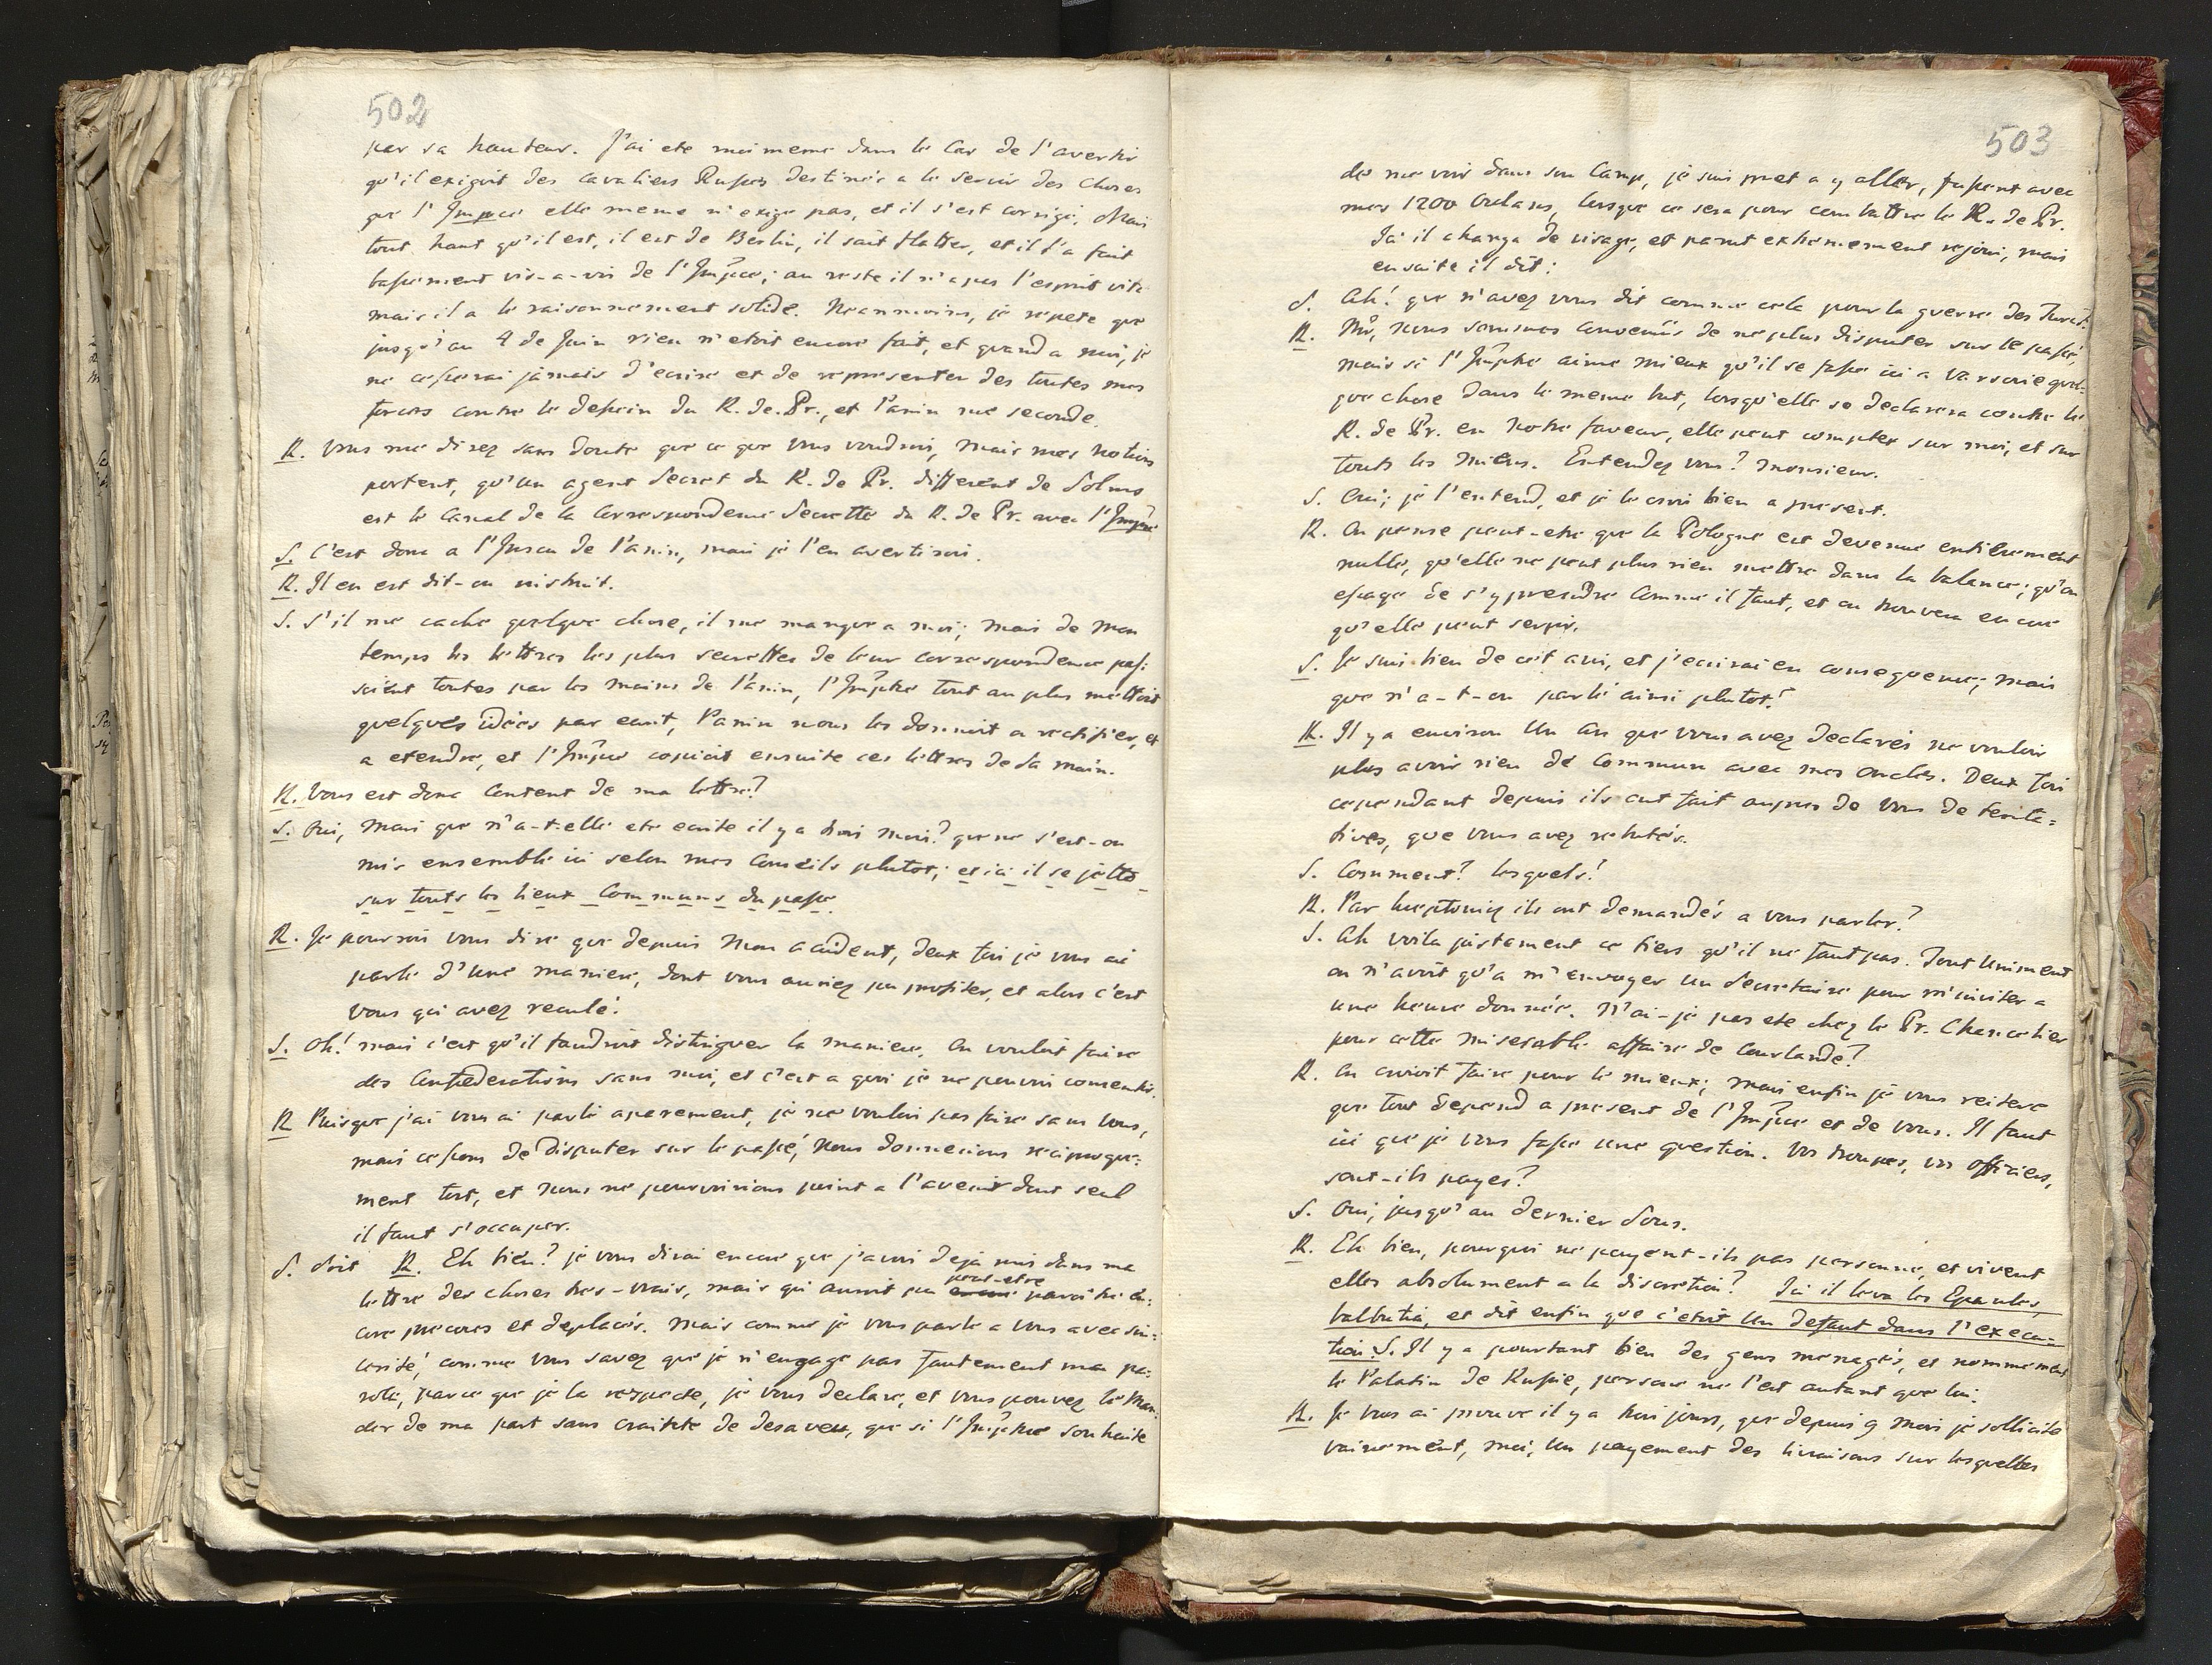 502
par sa hauteur. J'ai ete moi meme dans le Cas de l'avertir
qu'il exigoit des cavaliers Russes destinés a le servir des Choses
que l'Impce elle meme n'exige pas, et il s'est corrigé. Mais
tout haut qu'il est, il est de Berlin, il sait flatter, et il l'a fait
bassement vis-a-vis de l'Impce; au reste il n'a pas l'esprit vite
mais il a le raisonnement solide. Neanmoins, je repete que
jusqu'au 4 de Juin rien n'etoit encore fait, et quand a moi, je
ne cesserai jamais d'ecrire et de representer des toutes mes
forces contre le dessein du R. de Pr., et Panin me seconde.
R. Vous me direz sans doute que ce que Vous voudrois, mais mes notions
portent, qu'un agent Secret du R. de Pr. different de Solms
est le Canal de la Correspondence Secrette du R. de Pr. avec l'Impce
S. C'est donc a l'Inscu de Panin, mais je l'en avertirai.
R. Il en est dit-on instruit.
S. S'il me cache quelque chose, il me manque a moi; mais de mon
temps les lettres les plus secrettes de leur correspondence pas-
soient toutes par les mains de Panin, l'Imptce tout au plus mettoit
quelques idées par ecrit, Panin nous les donnoit a rectifier, et
a etendre, et l'Impce copioit ensuite ces lettres de sa main.
R. Vous est donc Content de ma lettre?
S. Oui, mais que n'a-t-elle ete ecrite il y a trois mois? que ne s'est-on
mis ensemble ici selon mes Conseils plutot; et ici il se jetta
sur touts les lieux Communs du passé.
R. Je pourrois vous dire que depuis Mon accident, deux fois je vous ai
parlé d'une maniere, dont vous auriez pu profiter, et alors c'est
vous qui avez reculé!
S. Oh! mais c'est qu'il faudroit distinguer la maniere. On vouloit faire
des Confederations sans moi, et c'est a quoi je ne pouvois consentir.
R Puisque j'ai vous ai parlé aparement, je ne voulois pas faire sans Vous,
mais cessons de disputer sur le passé, nous donnerions reciproque:
ment tort, et nous ne pourvoirions point a l'avenir dont seul
il faut s'occuper.
S. Soit R. Eh bien? je vous dirai encore que j'aurois deja mis dans ma
lettre des choses tres-vrais, mais qui auroit pu peut-etre paroitre en:
core precoces et deplacés. Mais comme je vous parle a vous avec sin:
cerité, comme vous savez que je n'engage pas fautement ma pa:
role, parce que je la respecte, je vous declare, et vous pouvez le Man:
der de ma part sans crainte de desaveu, que si l'Imptrce souhaite
503
de me voir dans son Camp, je suis pret a y aller, fussent avec
mes 1200 Oulans, lorsque ce sera pour combattre le R. de Pr.
Ici il changa de visage, et parut extremement rejoui, mais
ensuite il dit:
S. Ah! que n'avez vous dit comme cela pour la guerre des Turcs!
R. Mr, nous sommes Convenüs de ne plus disputer sur le passé,
mais si l'Imptce aime mieux qu'il se fasse ici a Varsovie quel-
que chose dans le meme but, lorsqu'elle se declarera contre le
R. de Pr. en notre faveur, elle peut compter sur moi, et sur
touts les Miens. Entendez vous? monsieur.
S. Oui; je l'entend, et je le crois bien a present.
R. On pense peut-etre que la Pologne est devenue entierement
nulle, qu'elle ne peut plus rien mettre dans la balance; qu'on
essaye de s'y prendre Comme il faut, et on trouvera encore
qu'elle peut servir.
S. Je suis bien de cet avis, et j'ecrirai en consequence; mais
que n'a-t-on parlé ainsi plutot!
R. Il y a environ Un An que vous avez declarés ne vouloir
plus avoir rien de Commun avec mes Oncles. Deux fois
cependant depuis ils ont fait aupres de Vous de tenta=
tives, que vous avez rebutés.
S. Comment? lesquels!
R. Par ils ont demandés a vous parler?
S. Ah voila justement ce tiers qu'il ne faut pas. Tout Uniment
on n'avoit qu'a m'envoyer un Secretaire pour m'inviter a
une heure donnée. N'ai-je pas ete chez le Pr. Chancelier
pour cette miserable affaire de Courlande?
R. On croioit faire pour le mieux; mais enfin je vous reitere
que tout depend a present de l'Impce et de vous. Il faut
ici que je vous fasse une question. Vos troupes, vos officiers,
sont-ils payes?
S. Oui, jusqu'au dernier Sous.
R. Eh bien, pourquoi ne payent-ils pas personne, et vivent
elles absolument a la discretion? Ici il leva les Epaules,
balbutia, et dit enfin que c'etoit Un defaut dans l'execu=
tion S. Il y a pourtant bien des gens menagés, et nommement
le Palatin de Russie, personne ne l'est autant que lui.
R. Je Vous ai prouvé il y a trois jours, que depuis 9 mois je sollicite
vainement, moi, Un payement des livraisons sur lesquelles